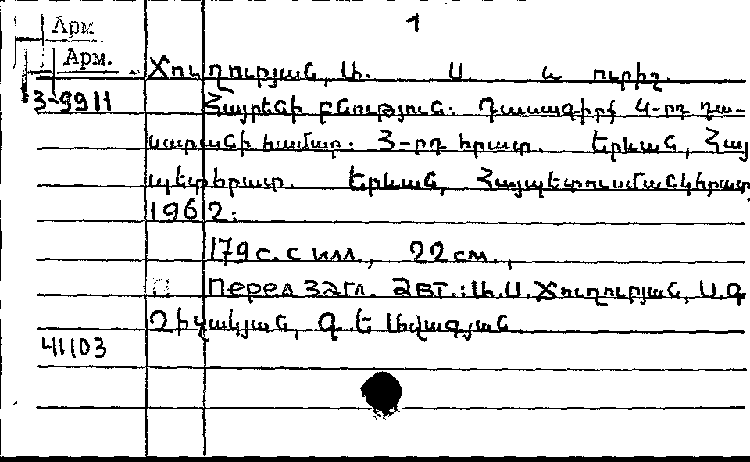 1
Арм
Арм.
Ճուղուրյան, Ա. Ա. և ուրիշ.
3-9911
Հայրենի բնություն: Դասագիրք 4-րդ դա-
սարանի համար. 3-րդ հրատ. Երևան, Հայ
պետհրատ. Երևան, Հայպետուսմանկհրատ,
1962:
179 с. с илл., 22 см.,
Перед загл. авт.: Ա.Ա. Ճուղուրյան, Ա.Գ
Զիվանյան, Գ. Ե
41103